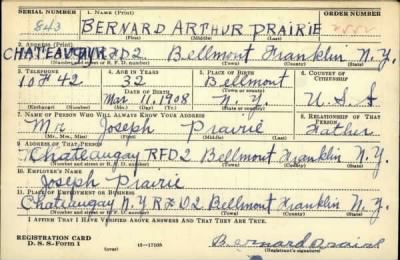 SERIAL NUMBER 1. NAME (Print) ORDER NUMBER
843 BERNARD ARTHUR PRAIRIE
(First) (Middle) (Last)
2. ADDRESS (Print)
CHATEAUGUAY RFD2 Bellmont Franklin N.Y.
(Number and street or R. F. D. number) (Town) (County) (State)
3. TELEPHONE 4. AGE IN YEARS 5. PLACE OF BIRTH 6. COUNTRY OF CITIZENSHIP
10F42 32 Bellmont
DATE OF BIRTH (Town or county)
Mar 1908 N.Y. U.S.A
(Exchange) (Number) (Mo.) (Day) (Yr.) (State or country)
7. NAME OF PERSON WHO WILL ALWAYS KNOW YOUR ADDRESS 8. RELATIONSHIP OF THAT PERSON
Mr Joseph Prairie Father
(Mr., Mrs., Miss) (First) (Middle) (Last)
9. ADDRESS OF THAT PERSON
Chateaugay RFD2 Bellmont Franklin N.Y.
(Number and street or R. F. D. number) (Town) (County) (State)
10. EMPLOYER'S NAME
Joseph Prairie
11. PLACE OF EMPLOYMENT OR BUSINESS
Chateaugay N.Y RFD2 Bellmont Franklin N.Y.
(Number and street or R. F. D. number) (Town) (County) (State)
I AFFIRM THAT I HAVE VERIFIED ABOVE ANSWERS AND THAT THEY ARE TRUE.
REGISTRATION CARD
D. S. S. Form 1 (over) 16-17105 Bernard Prairie
(Registrant's signature)